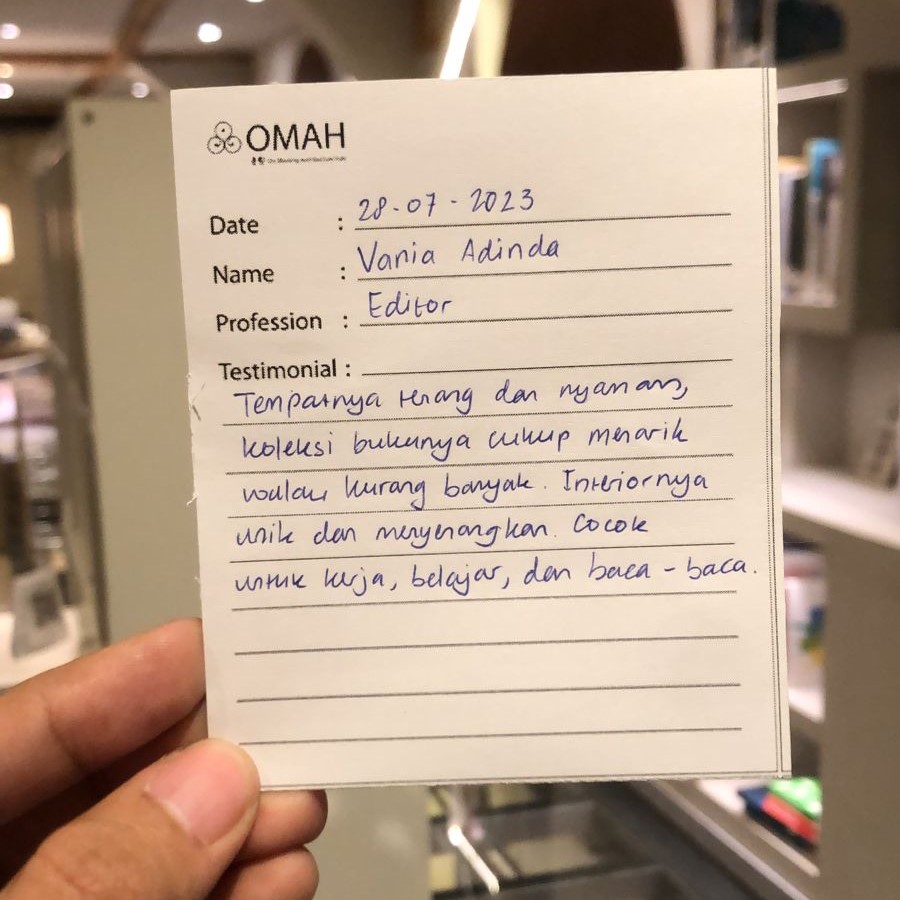 OMAH
Date : 28-07-2023
Name : Vania Adinda
Profession : Editor
Testimonial :
Tempatnya terang dan nyaman,
koleksi bukunya cukup menarik
walau kurang banyak. Interiornya
unik dan menyenangkan. Cocok
untuk kerja, belajar, dan baca-baca.